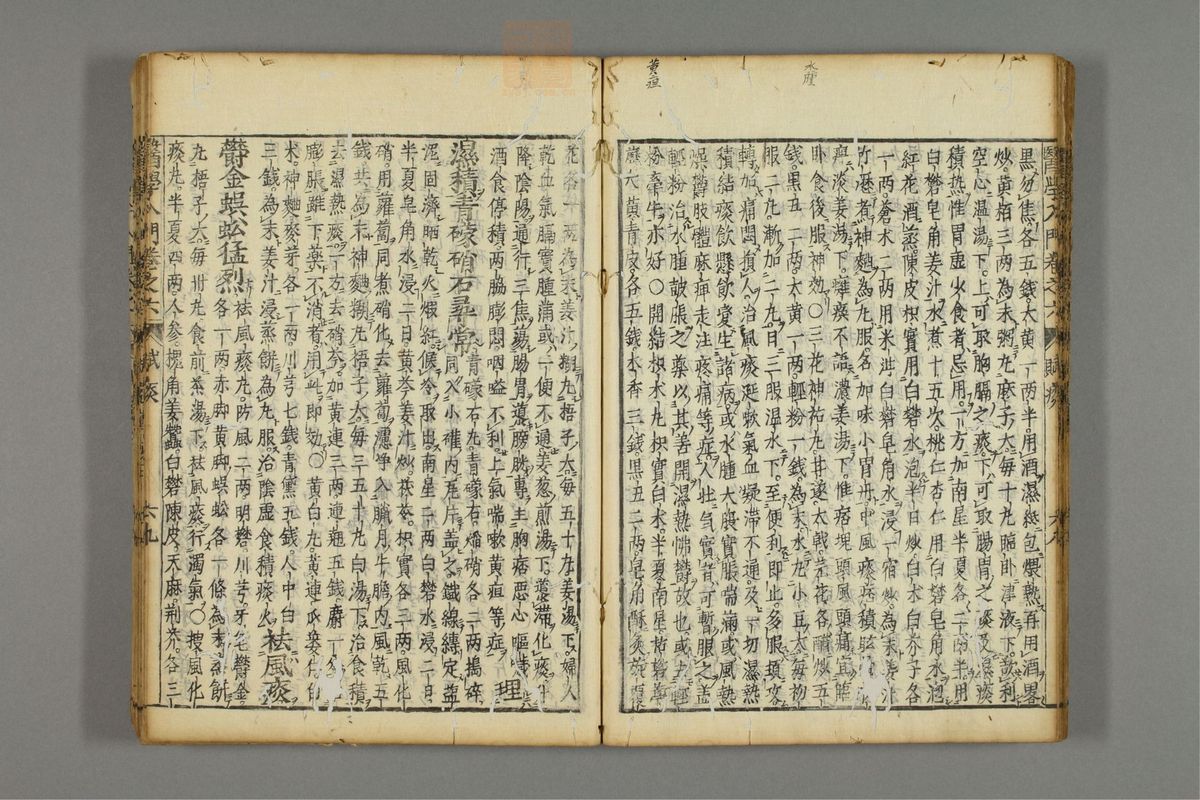 水腫
黄疸
醫學入門卷之六 賦痰 六八
黑勿焦各五錢大黃一兩半用酒濕紙包煨熟再用酒畧
炒黃栢三兩為末粥丸麻子大每十丸臨卧津液下欲利
空心溫湯下上可取胸膈之痰下可取腸胃之痰及濕痰
積熱惟胃虛火食者忌用一方加南星半夏各二兩半用
白礬皂角姜汁水煮十五次桃仁杏仁用白礬皂角水泡
紅花酒蒸陳皮枳實用白礬水泡半日炒白朮白芥子各
一兩蒼朮二兩用米泔白礬皂角水浸一宿炒為末姜汁
竹瀝煮神麯為丸服名加味小胃丹中風痰病積眩
暈淡姜湯下癱瘓不語濃姜湯下惟痞塊頭風頭痛宜
卧食後服神効〇三花神祐丸甘遂大戟芫花各醋炒五
錢黑丑二兩大黃一兩輕粉一錢為末水丸小豆大每初
服二丸漸加二丸日三服溫水下至便利即止多服頓攻
轉加痛悶損人治風痰涎嗽氣血凝滯不通及一切濕熱
積結痰飲懸飲變生諸病或水腫大脹喘滿或風熱
燥欝肢體麻痺走注疼痛等症人壯氣實者可暫服之盖
輕粉治水腫鼓脹之藥以其善開濕熱怫欝故也或去輕
粉牽牛亦好〇開結枳朮丸枳實白朮半夏南星苦葶
藶大黃青皮各五錢木香三錢黑丑二兩皂角酥炙旋覆
花各一兩為末姜汁糊丸梧子大每五十丸姜湯下婦人
乾血氣膈實腫滿或二便不通姜葱煎湯下導滯化痰升
降陰陽通行三焦蕩腸胃導膀胱專主胸痞惡心嘔噦
酒食停積兩脇膨悶咽嗌不利上氣喘嗽黃疸等症 理
濕積青礞硝石尋常 青礞石丸青礞石焰硝各二兩搗碎
同入小礶內瓦片盖之鐵線縛定盐
泥固濟晒乾火煆紅候冷取出南星二兩白礬水浸二日
半夏皂角水浸二日黃芩姜汁炒茯苓枳實各三兩風化
硝用蘿蔔同煮硝化去蘿蔔濾淨入臘月牛膽內風乾五
錢共為末神麯糊丸梧子大每三五十丸白湯下治食積
去濕熱痰一方去硝芩加黃連三兩連翹五錢麝一分
膨脹雖下藥不消者用此即効〇黃白丸黃連瓜蔞仁白
朮神麯麥芽各一兩川芎七錢青黛五錢人中白
三錢為末姜汁浸蒸餅為丸服治陰虛食積痰火 祛風痰
欝金蜈蚣猛烈 祛風痰丸防風二兩明礬川芎牙皂欝金
各一兩赤脚黃脚蜈蚣各一條為末蒸餅
丸梧子大每卅丸食前茶湯下祛風痰行濁氣〇搜風化
痰丸半夏四兩人參槐角姜蠶白礬陳皮天麻荊芥各三
醫學入門卷之六 賦痰 六九